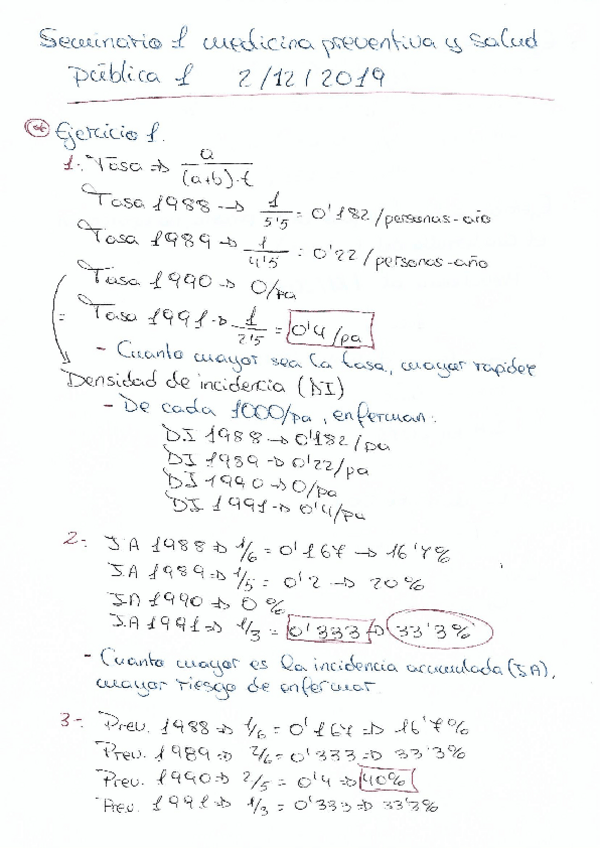 Seminario 1 medicina preventiva y salud
pública 1 2/12/2019
* Ejercicio 1.
1. Tasa => a / (a+b)·t
Tasa 1988 -> 1/5'5 = 0'182/personas-año
Tasa 1989 -> 1/4'5 = 0'22/personas-año
Tasa 1990 -> 0/pa
= Tasa 1991 -> 1/2'5 = 0'4/pa
- Cuanto mayor sea la tasa, mayor rapidez
Densidad de incidencia (DI)
- De cada 1000/pa, enferman:
DI 1988 -> 0'182/pa
DI 1989 -> 0'22/pa
DI 1990 -> 0/pa
DI 1991 -> 0'4/pa
2- IA 1988 => 1/6 = 0'167 -> 16'7%
IA 1989 => 1/5 = 0'2 -> 20%
IA 1990 => 0%
IA 1991 => 1/3 = 0'333 => 33'3%
- Cuanto mayor es la incidencia acumulada (IA),
mayor riesgo de enfermar
3- Prev. 1988 => 1/6 = 0'167 => 16'7%
Prev. 1989 => 2/6 = 0'333 => 33'3%
Prev. 1990 => 2/5 = 0'4 => 40%
Prev. 1991 => 1/3 = 0'333 => 33'3%